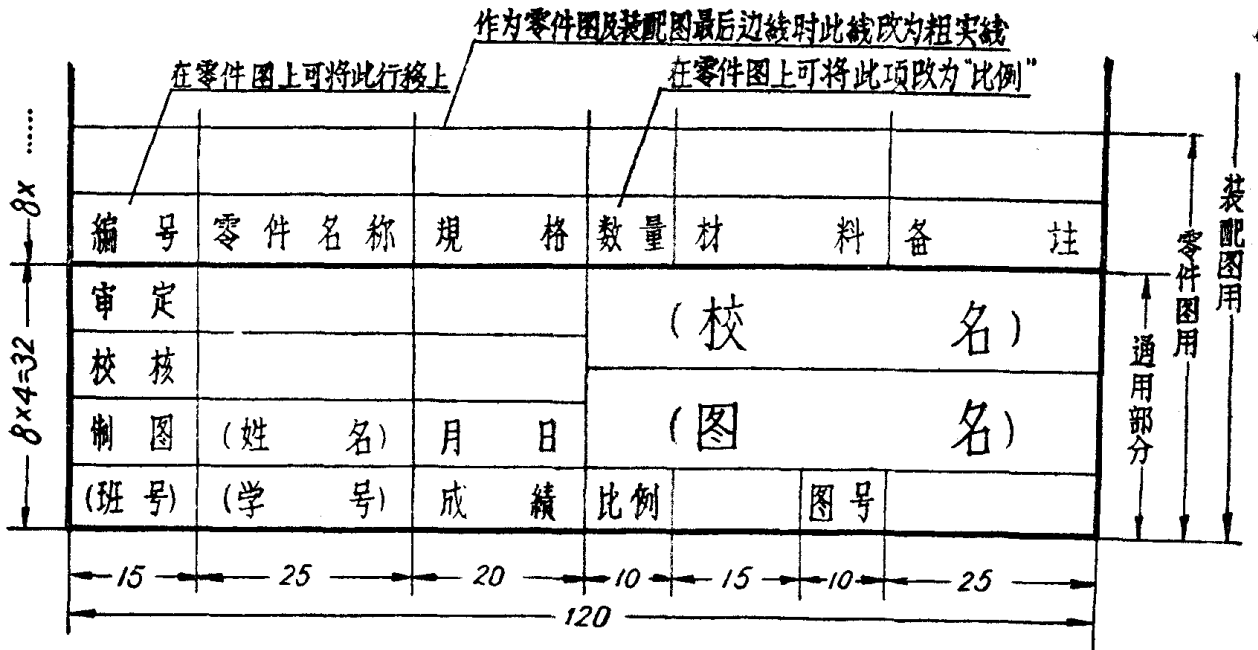 作为零件图及装配图最后边线时此线改为粗实线
在零件图上可将此行移上
在零件图上可将此项改为"比例"
8x ......
編号 零件名称 規格 数量 材料 备註
审定
(校名)
校核
制图 (姓名) 月日
(图名)
(班号) (学号) 成績 比例 图号
8×4=32
通用部分
零件图用
装配图用
15 25 20 10 15 10 25
120